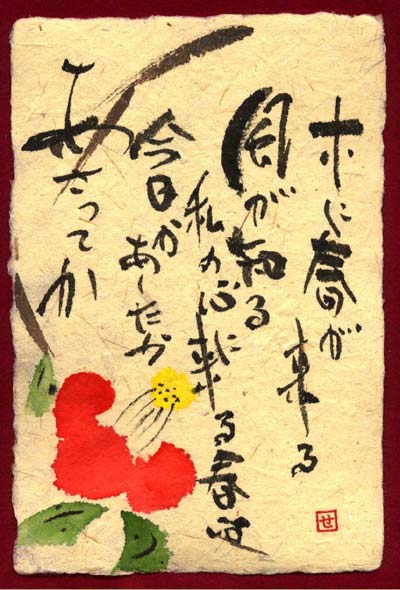 木に春が来る
が知る
私の心に来る春は
今日かあしたか
あさってか
せ